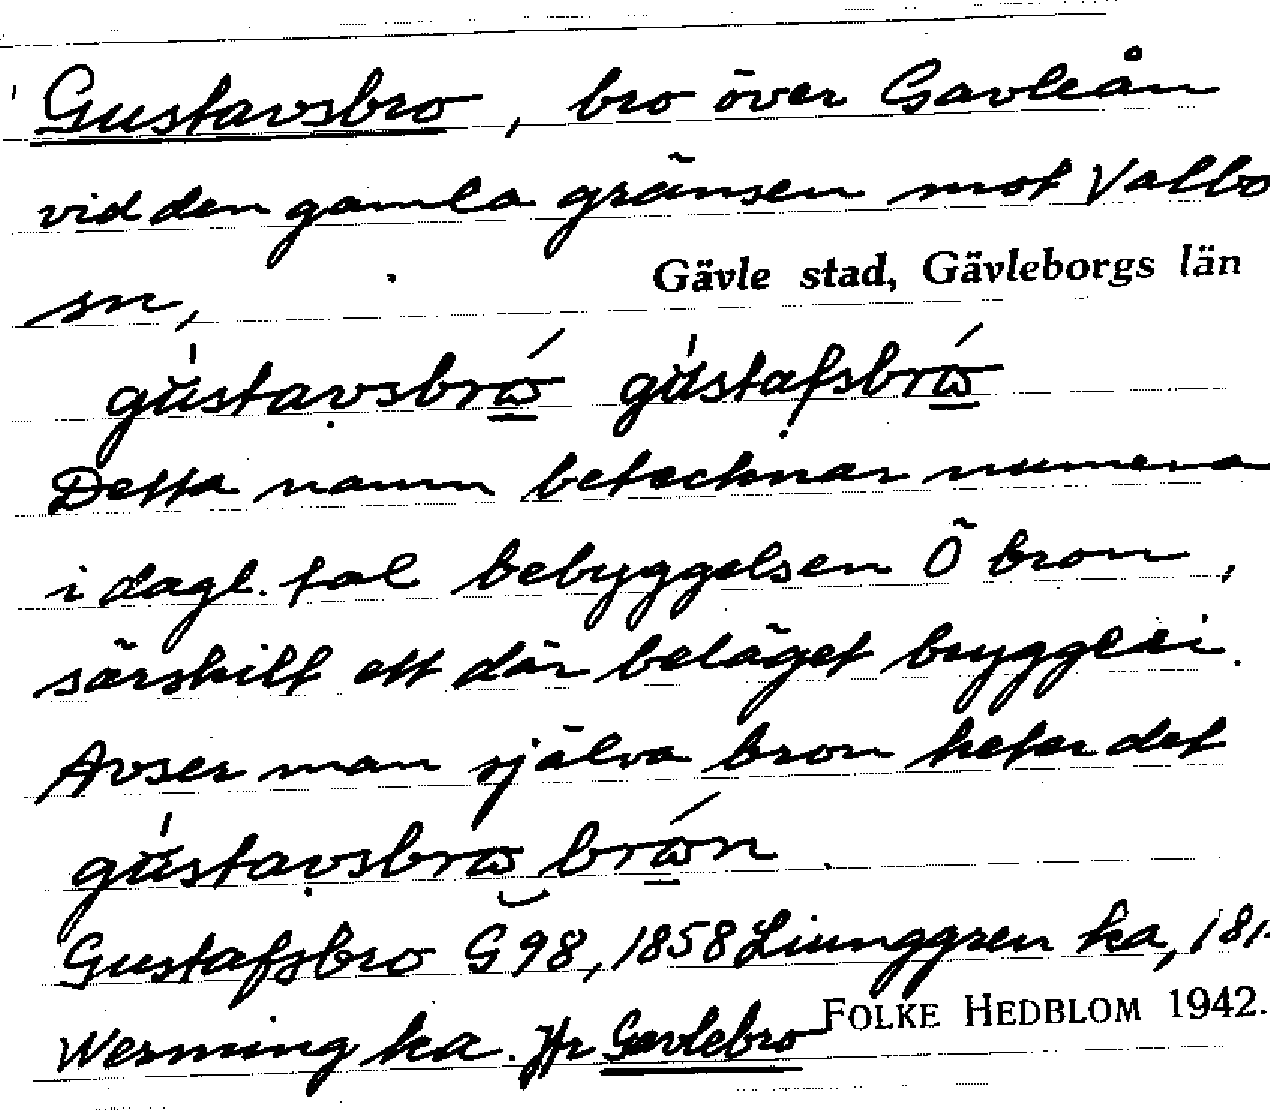 Gustavsbro, bro över Gavleån
vid den gamla gränsen mot Valbo
sn,
Gävle stad, Gävleborgs län
gustavsbro gustafsbro
Detta namn betecknar numera
i dagl. tal bebyggelsen Ö bron,
särskilt ett där beläget bryggeri.
Avser man själva bron heter det
gustavsbro bron
Gustafsbro G 98, 1858 Liunggren ka, 181
Werming ka. Jfr Gavlebro
FOLKE HEDBLOM 1942.